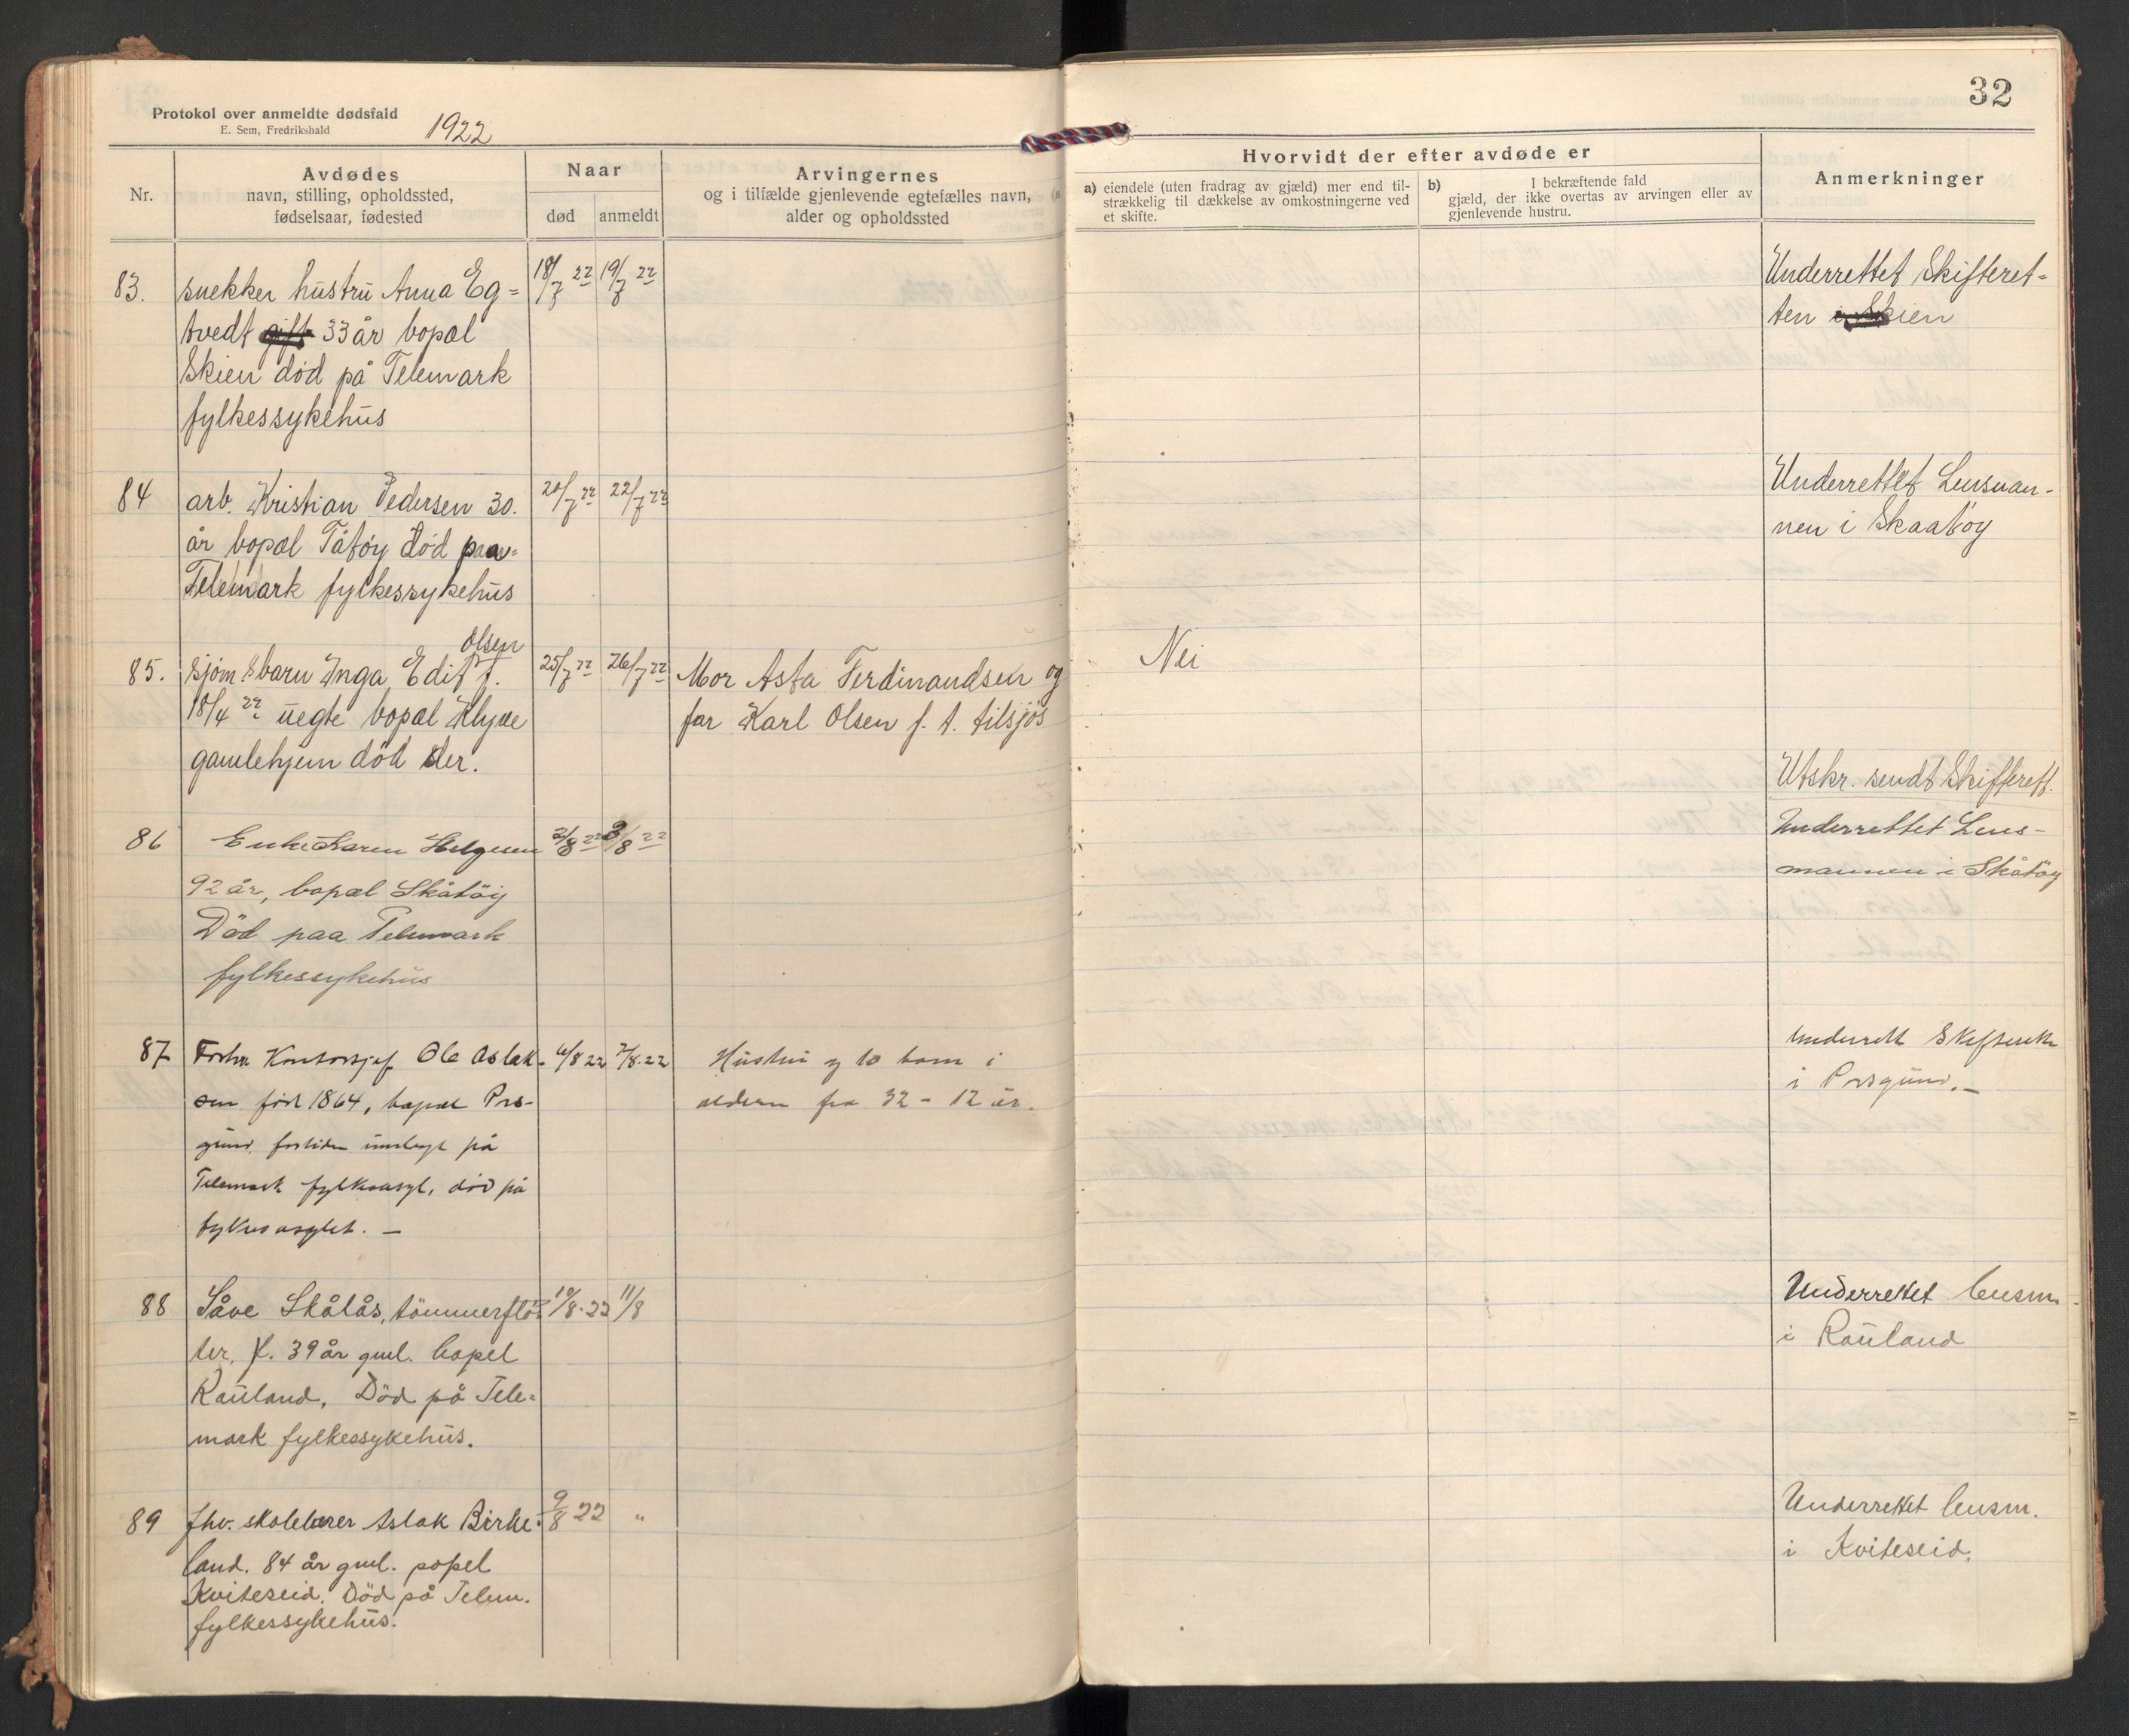 Protokol over anmeldte dødsfald
E. Sem, Fredrikshald
1922
Nr.
Avdødes
navn, stilling, opholdssted,
fødselsaar, fødested
Naar
død
anmeldt
Arvingernes
og i tilfælde gjenlevende egtefælles navn,
alder og opholdssted
83.
snekker hustru Anna Eg=
tvedt gift 33 år bopæl
Skien död på Telemark
fylkessykehus
18/7 22
19/7 22
84
arb. Kristian Pedersen 30.
år bopæl Tåtöy död paa
Telemark fylkessykehus
20/7 22
22/7 22
85.
Olsen
sjöm sbarn Inga Edit f.
18/4 22 uegte bopæl Klyve
gamlehjem död der.
25/7 22
26/7 22
Mor Asta Ferdinandsen og
far Karl Olsen f. t. tilsjös
86
Enke Karen Helgesen
92 år, bopæl Skåtöy
Död paa Telemark
fylkessykehus
2/8 22
3/8 22
87
Forhv Kontorsjef Ole Aslak-
sen föd 1864, bopæl Pors-
grund, fortiden innlagt på
Telemark fylkesasyl, död på
fylkesasylet. —
6/8 22
7/8.22
Hustru og 10 barn i
alderen fra 32 - 12 år.
88
Såve Skålås, tömmerflö=
ter, f. 39 år gml. bopel
Rauland. Död på Tele=
mark fylkessykehus.
10/8.22
11/8
89
fhv. skolelærer Aslak Birke=
land. 84 år gml. popel
Kviteseid. Död på Telem.
fylkessykehus.
9/8 22
"
32
Hvorvidt der efter avdøde er
a) eiendele (uten fradrag av gjæld) mer end til-
strækkelig til dækkelse av omkostningerne ved
et skifte.
b) I bekræftende fald
gjæld, der ikke overtas av arvingen eller av
gjenlevende hustru.
Anmerkninger
Underrettet Skifteret=
ten i Skien
Underrettet Lensman-
nen i Skaatöy
Nei
Utskr. sendt Skifterett.
Underrettet Lens-
mannen i Skåtöy
Underrett Skifterett
i Porsgrund. —
Underrettet lensm.
i Rauland
Underrettet lensm.
i Kviteseid.